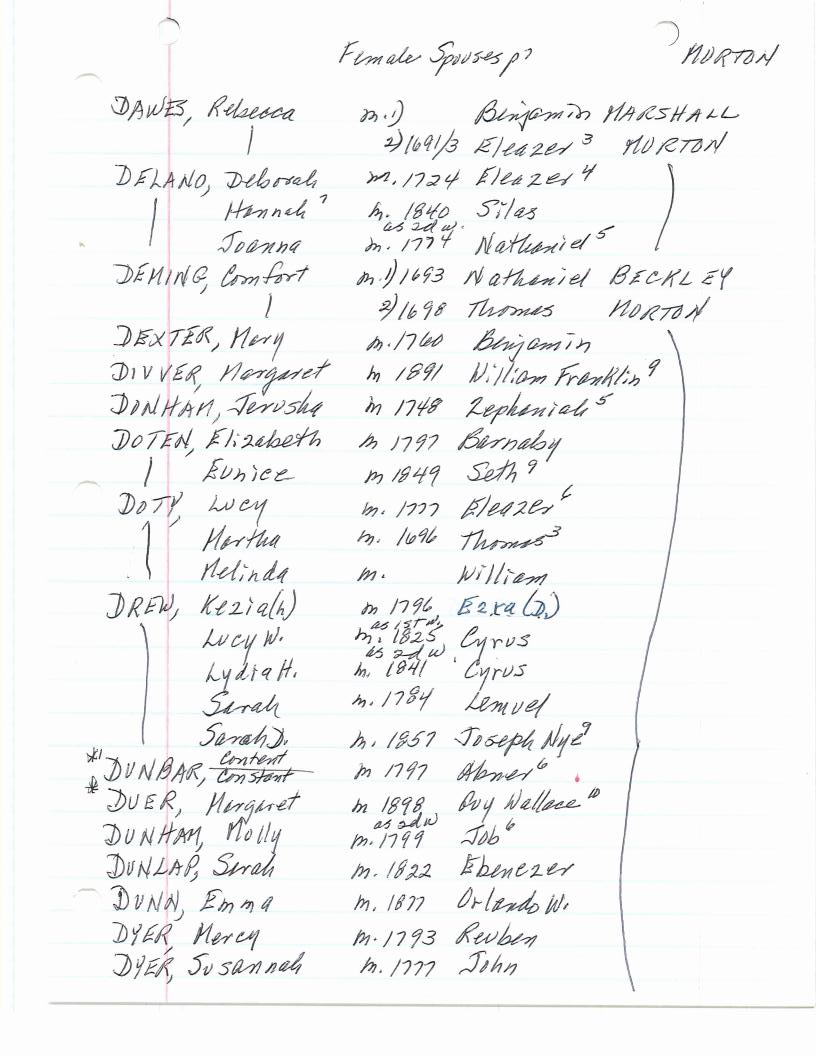 Female Spouses p7 MORTON
DAWES, Rebecca m. 1) Benjamin MARSHALL
2) 1691/3 Eleazer 3 MORTON
DELANO, Deborah m. 1724 Eleazer 4
Hannah 7 m. 1840 Silas
as 2d w.
Joanna m. 1774 Nathaniel 5
DEMING, Comfort m. 1) 1693 Nathaniel BECKLEY
2) 1698 Thomas MORTON
DEXTER, Mary m. 1760 Benjamin
DIVVER, Margaret m 1891 William Franklin 9
DONHAM, Jerusha m 1748 Zephaniah 5
DOTEN, Elizabeth m 1797 Barnaby
Eunice m 1849 Seth 9
DOTY, Lucy m. 1777 Eleazer 6
Martha m. 1696 Thomas 3
Melinda m. William
DREW, Kezia(h) m 1796 Ezra (D.)
as 1st w.
Lucy W. m. 1825 Cyrus
as 2d w
Lydia H. m. 1841 Cyrus
Sarah m. 1784 Lemuel
Sarah D. m. 1857 Joseph Nye 9
*1 Content
DUNBAR, Constant m 1797 Abner 6
* DUER, Margaret m 1898 Guy Wallace 10
as 2d w
DUNHAM, Molly m. 1799 Job 6
DUNLAP, Sarah m. 1822 Ebenezer
DUNN, Emma m. 1877 Orlando W.
DYER, Mercy m. 1793 Reuben
DYER, Susannah m. 1777 John